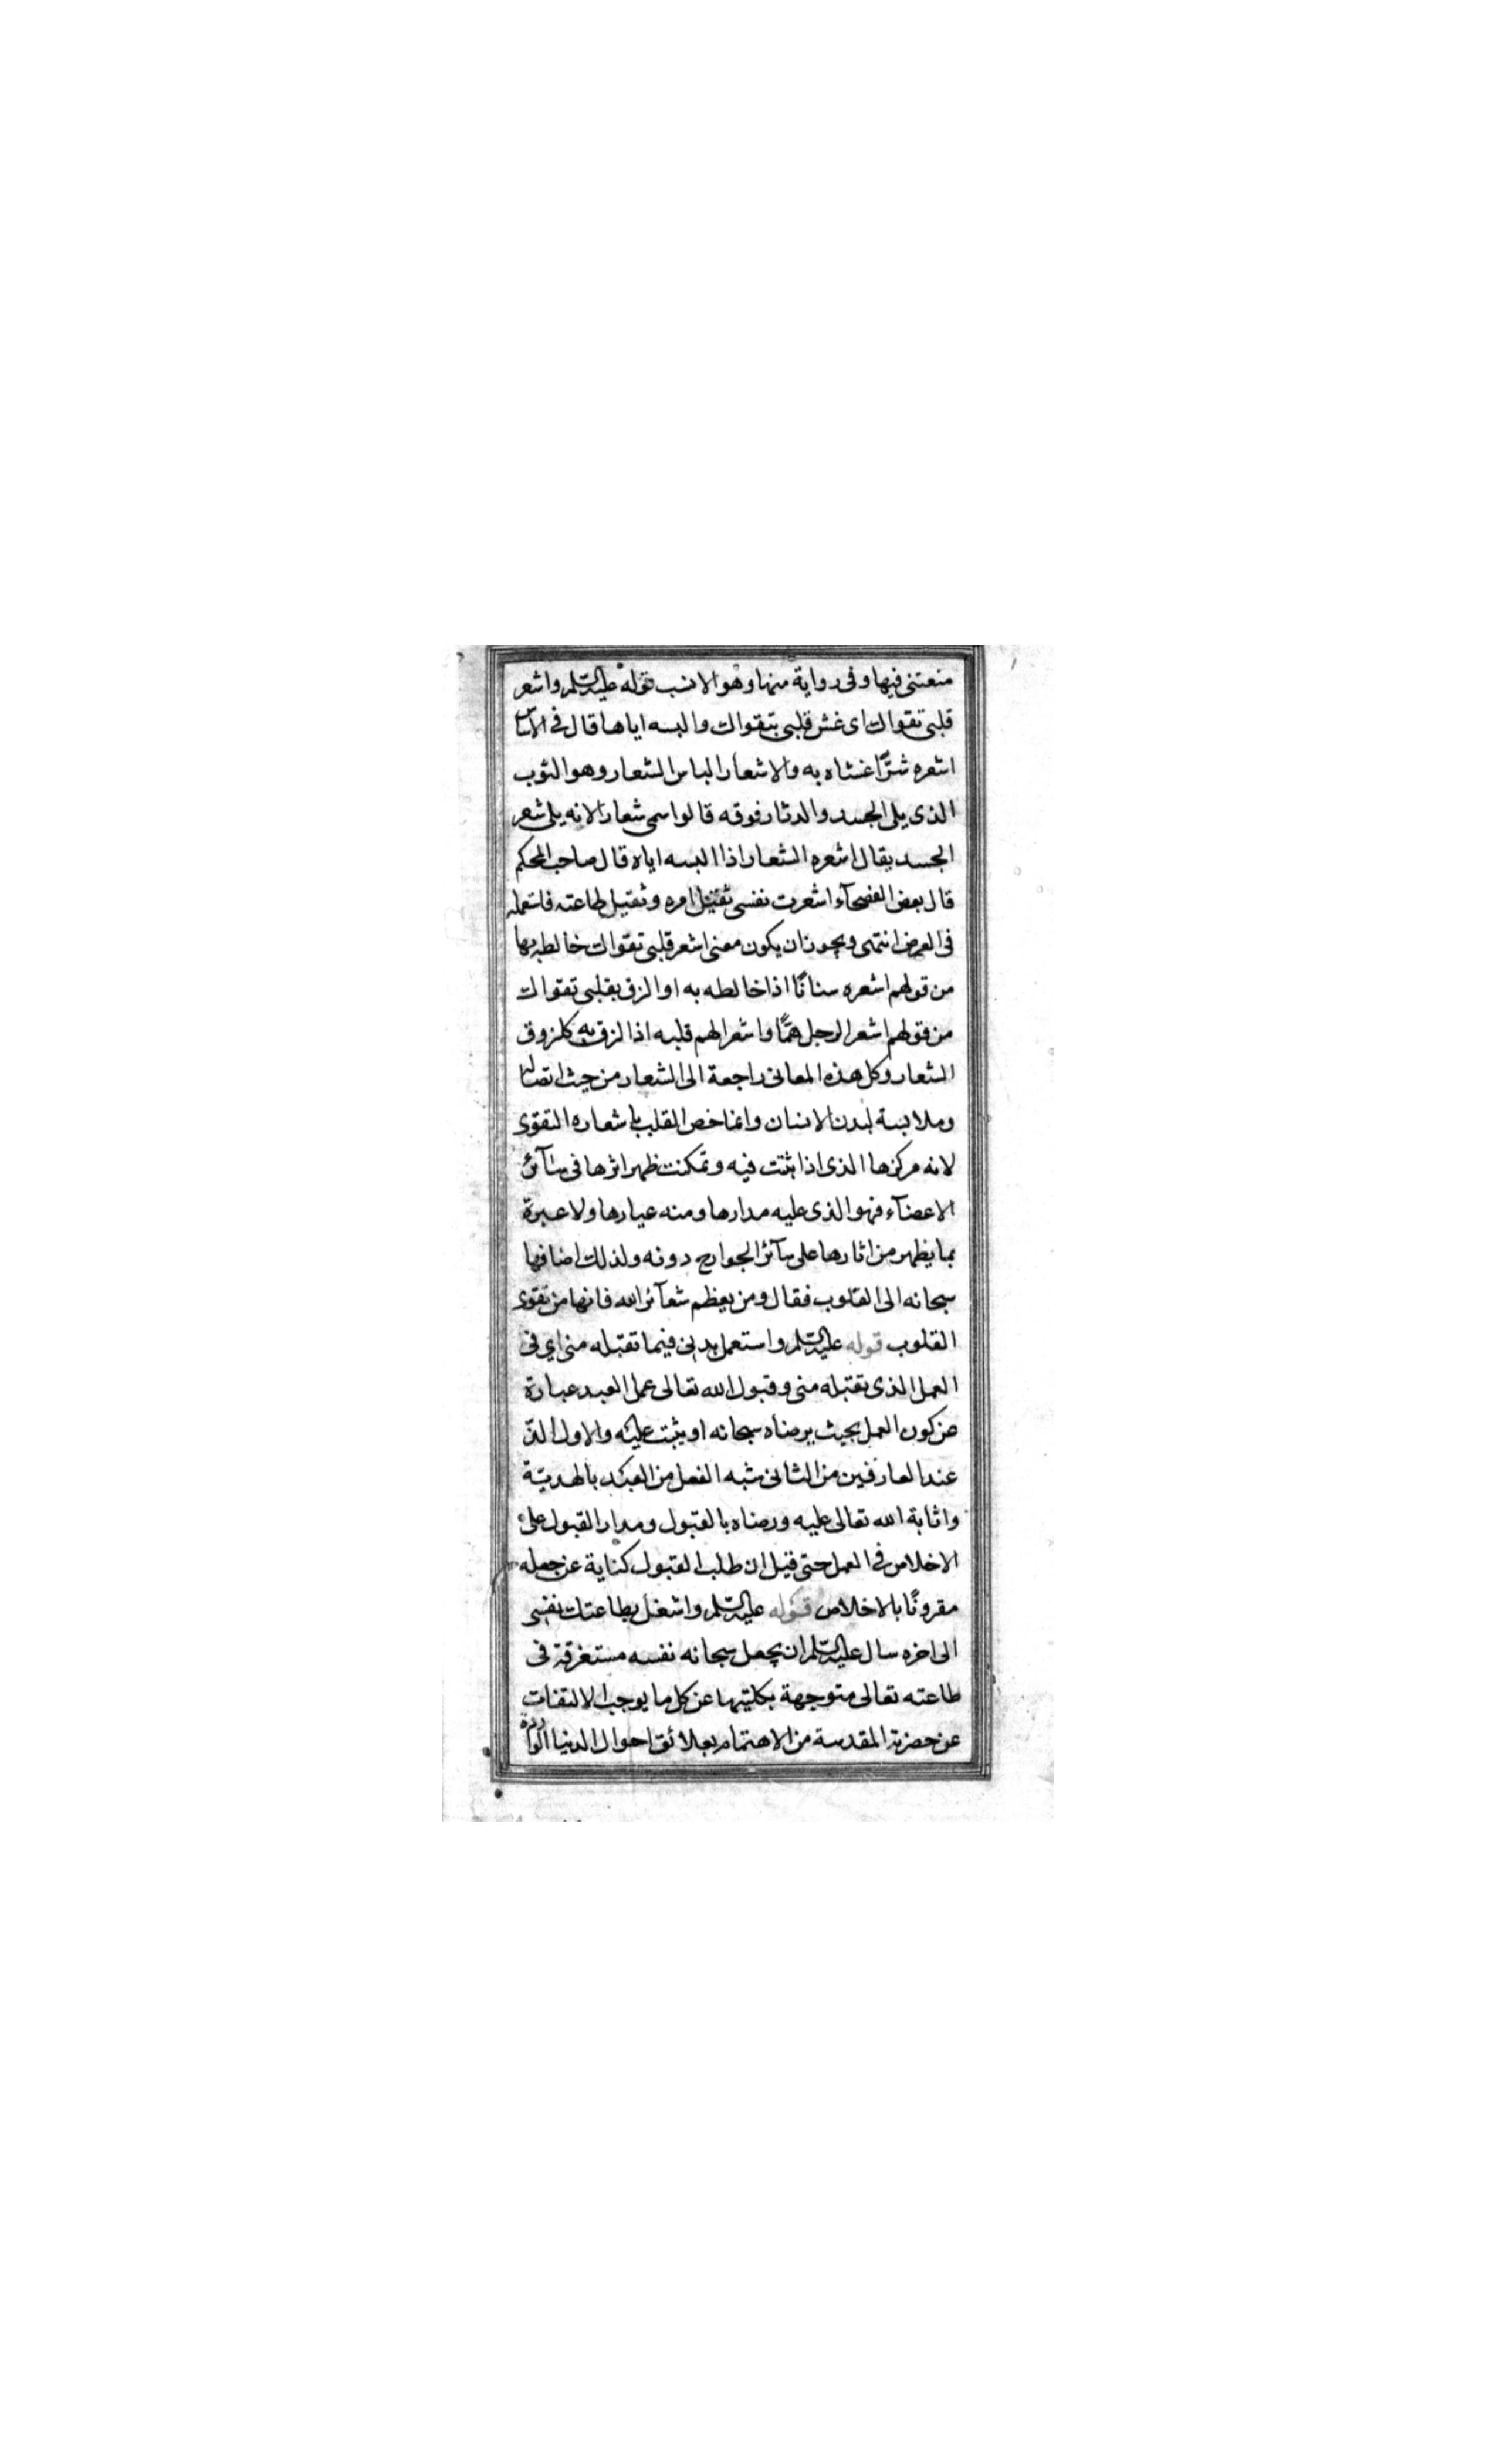 منعتنى فيها وفى رواية منها وهو الانسب قوله عليه السلم واشعر
قلبى تقواك اى غش قلبى بتقواك والبسه اياها قال فى الاساس
اشعره شرًّا غشاه به والاشعار الباس الشعار وهو الثوب
الذى يلى الجسد والدثار فوقه قالوا سمى شعارا لانه يلى شعر
الجسد يقال اشعره الشعار اذا البسه اياه قال صاحب المحكم
قال بعض الفصحآء اشعرت نفسى تقبّل امره وتقبل طاعته فاستعمله
فى العرض انتهى ويجوز ان يكون معنى اشعر قلبى تقواك خالطه بها
من قولهم اشعره سنانًا اذا خالطه به او الزق بقلبى تقواك
من قولهم اشعر الرجل همًّا واشعر الهم قلبه اذا لزق به كلزوق
الشعار وكل هذه المعانى راجعة الى الشعار من حيث اتصاله
وملابسة لبدن الانسان وانما خص القلب باشعاره التقوى
لانه مركزها الذى اذا ثبتت فيه وتمكنت ظهر اثرها فى سآئر
الاعضآء فهو الذى عليه مدارها ومنه عيارها ولا عبرة
بما يظهر من اثارها على سآئر الجوارح دونه ولذلك اضافها
سبحانه الى القلوب فقال ومن يعظم شعآئر الله فانها من تقوى
القلوب قوله عليه السلم واستعمل بدنى فيما تقبله منى اي فى
العمل الذى تقبله منى وقبول الله تعالى عمل العبد عبارة
عن كون العمل بحيث يرضاه سبحانه او يثبت عليه والاول الذّ
عند العارفين من الثانى شبه الفعل من العبد بالهديّة
واثابة الله تعالى عليه ورضاه بالقبول ومدار القبول على
الاخلاص فى العمل حتى قيل ان طلب القبول كناية عن جعله
مقرونًا بالاخلاص قوله عليه السلم واشغل بطاعتك نفسى
الى اخره سال عليه السلم ان يجعل سبحانه نفسه مستغرقة فى
طاعته تعالى متوجهة بكليتها عن كل ما يوجب الالتفات
عن حضرته المقدسة من الاهتمام بعلائق احوال الدنيا الواردة